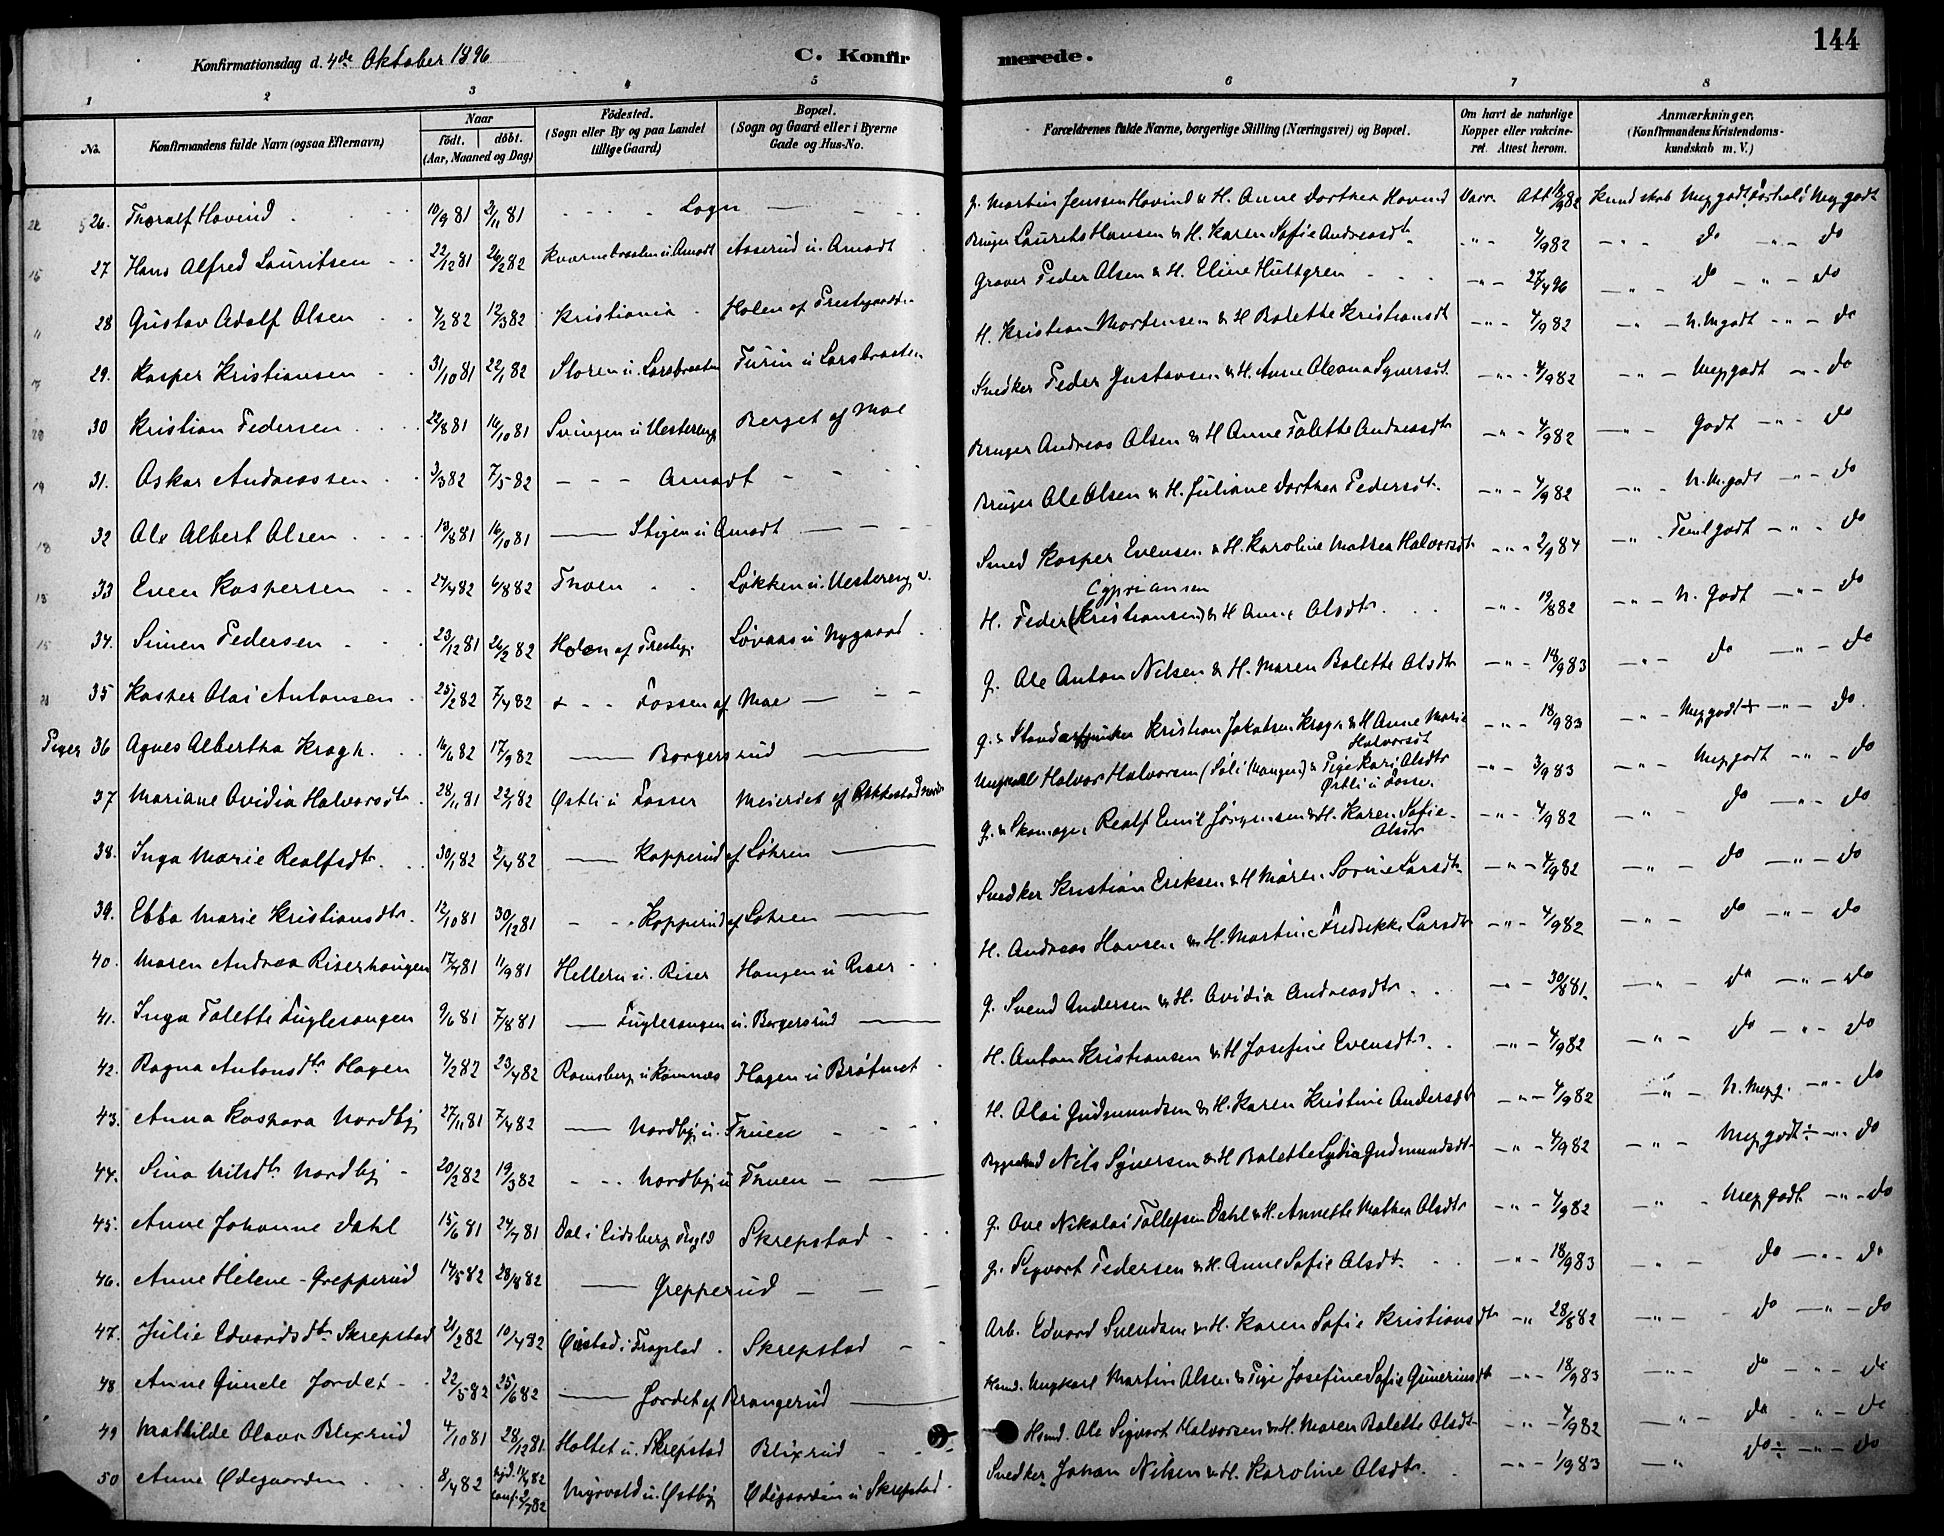 144
Konfirmationsdag d. 4de Oktober 1896 C. Konfirmerede.
1 2 3 4 5 6 7 8
No. Konfirmandens fulde Navn (ogsaa Efternavn) Naar födt. döbt. (Aar, Maaned og Dag) Födested. (Sogn eller By og paa Landet tillige Gaard) Bopæl. (Sogn og Gaard eller i Byerne Gade og Hus-No. Forældrenes fulde Navne, borgerlige Stilling (Næringsvei) og Bopæl. Om havt de naturlige Kopper eller vakcineret. Attest herom. Anmærkninger. (Konfirmandens Kristendomskundskab m. V.)
26. Thoralf Hovind 10/9 81 2/11 81 g. Martin Jenssen Hovind & H. Anne Dorthea Hovind Vacc. Att Kundskab Meg godt Meg godt
27 Hans Alfred Lauritsen 22/12 81 26/2 82 Aaserud u. Amodt Bruger Laurits Hansen & H. Karen Sofie Andreasdtr 4/9 82 do do
28 Gustav Adolf Olsen 4/2 82 12/3 82 Kristiania Holen af Prestegaarden Graver Peder Olsen & H. Eline Hultgren 27/4 96 do do
29. Kasper Kristiansen 31/10 81 22/1 82 Storen u. Larsbraaten Furin u Larsbraaten H. Kristian Mortensen & H Bolette Kristiansdt 4/9 82 N. M godt do
30 Kristian Pedersen 22/8 81 16/10 81 Svingen u Vestereng Berget af Moe Snedker Peder Gustavsen & H. Anne Oleana Syversdt. 4/9 82 Meg godt do
31. Oskar Andreassen 3/3 82 7/5 82 Amodt Bruger Andreas Olsen & H Anne Tolette Andreasdtr 4/9 82 Godt do
32 Ole Albert Olsen 19/8 81 16/10 81 Stigen u Amodt Bruger Ole Olsen & H. Juliane Dorthea Pedersdt. 4/9 82 N. M. godt do
33 Even Kaspersen 24/4 82 6/8 82 Thoen Løkken u. Vestereng Smed Kasper Evensen & H. Karoline Matea Halvorsdt 2/9 84 Teml godt do
34. Simen Pedersen 23/12 81 26/2 82 Holen af Presteg. Løvaas u Nygaard H. Peder (Kristiansen) Cypriansen & H Anne Olsdtr. 19/8 82 N. Godt do
35 Kasper Olai Antonsen 25/2 82 7/4 82 Fossen af Moe g. Ole Anton Nilsen & H. Maren Bolette Olsdtr 18/9 83 do do
Piger 36 Agnes Albertha Kragh. 16/6 82 17/9 82 Borgersrud Kristian Jakobsen Kragh & H Anne Marie Halvorsdt 18/9 83 Meg godt + do
37 Mariane Ovidia Halvorsdtr. 28/11 81 22/1 82 Østli u Fosser Meieriet af Askkestad Ungkarl Halvor Halvorsen & Pige Kari Olsdtr Østli u Fosser 3/9 83 Meg godt do
38. Inga Marie Realfsdtr. 30/1 82 2/4 82 Kopperud af Løhren g. & Skomager Realf Emil Jørgensen & H. Karen Sofie Olsdtr 4/9 82 do do
39. Ebba Marie Kristiansdtr. 12/10 81 30/12 81 Kopperud af Løhren Snedker Kristian Eriksen & H Maren Sorine Larsdtr. 4/9 82 do do
40. Maren Andrea Riserhaugen 17/7 81 11/9 81 Hellern u. Riser Haugen u Riser H. Andreas Hansen & H. Martine Fredrikke Larsdtr 4/9 82 do do
41. Inga Tolette Fuglesangen 9/6 81 7/8 81 Fuglesangen u. Borgersrud g. Svend Andersen & H. Ovidia Andreasdtr. 30/8 81. do do
42. Ragna Antonsdtr Hagen 4/2 82 23/4 82 Ramsberg u Kamnæs Hagen u Brøtmet H. Anton Kristiansen & H Josefine Evensdtr. 4/9 82 do do
43. Anna Kaspara Nordby 27/11 81 7/4 82 Nordby u. Thuen H. Olai Gudmundsen & H. Karen Kristine Andersdt 4/9 82 N. Meg. do
44. Sina Nilsdtr. Nordby 20/2 82 19/3 82 Nordby u Thuen Nils Syversen & H Bolette Lydia Gudmundsdtr 4/9 82 Meg godt ÷ do
45. Anne Johanne Dahl 15/6 81 24/7 81 Dal i Eidsberg Skrepstad g. Ove Nikolai Tollefsen Dahl & H. Annette Mathea Olsdtr 4/9 82 Meg godt do
46. Anne Helene Grepperud 14/5 82 28/8 82 Grepperud g. Sigvart Pedersen & H Anne Sofie Olsdt. 18/9 83 do do
47. Julie Edvardsdtr. Skrepstad 21/2 82 10/4 82 Skrepstad Arb. Edvard Svendsen & H. Karen Sofie Kristiansdtr 28/8 82 do do
48 Anne Gunde Jordet 22/5 82 25/6 82 Jordet af Brangerud Ungkarl Martin Olsen & Pige Josefine Sofie Guneriusdt 18/9 83 do do
49 Mathilde Olava Blixrud 4/10 81 28/12 81 Holtet u. Skrepstad Blixrud Ole Sigvart Halvorsen & H. Maren Bolette Olsdt. 4/9 82 do do
50 Anne Ødegaarden 8/4 82 Myrvold u. Østby Ødegaarden u Skrepstad Snedker Johan Nilsen & H. Karoline Olsdtr. 1/9 83 do ÷ do